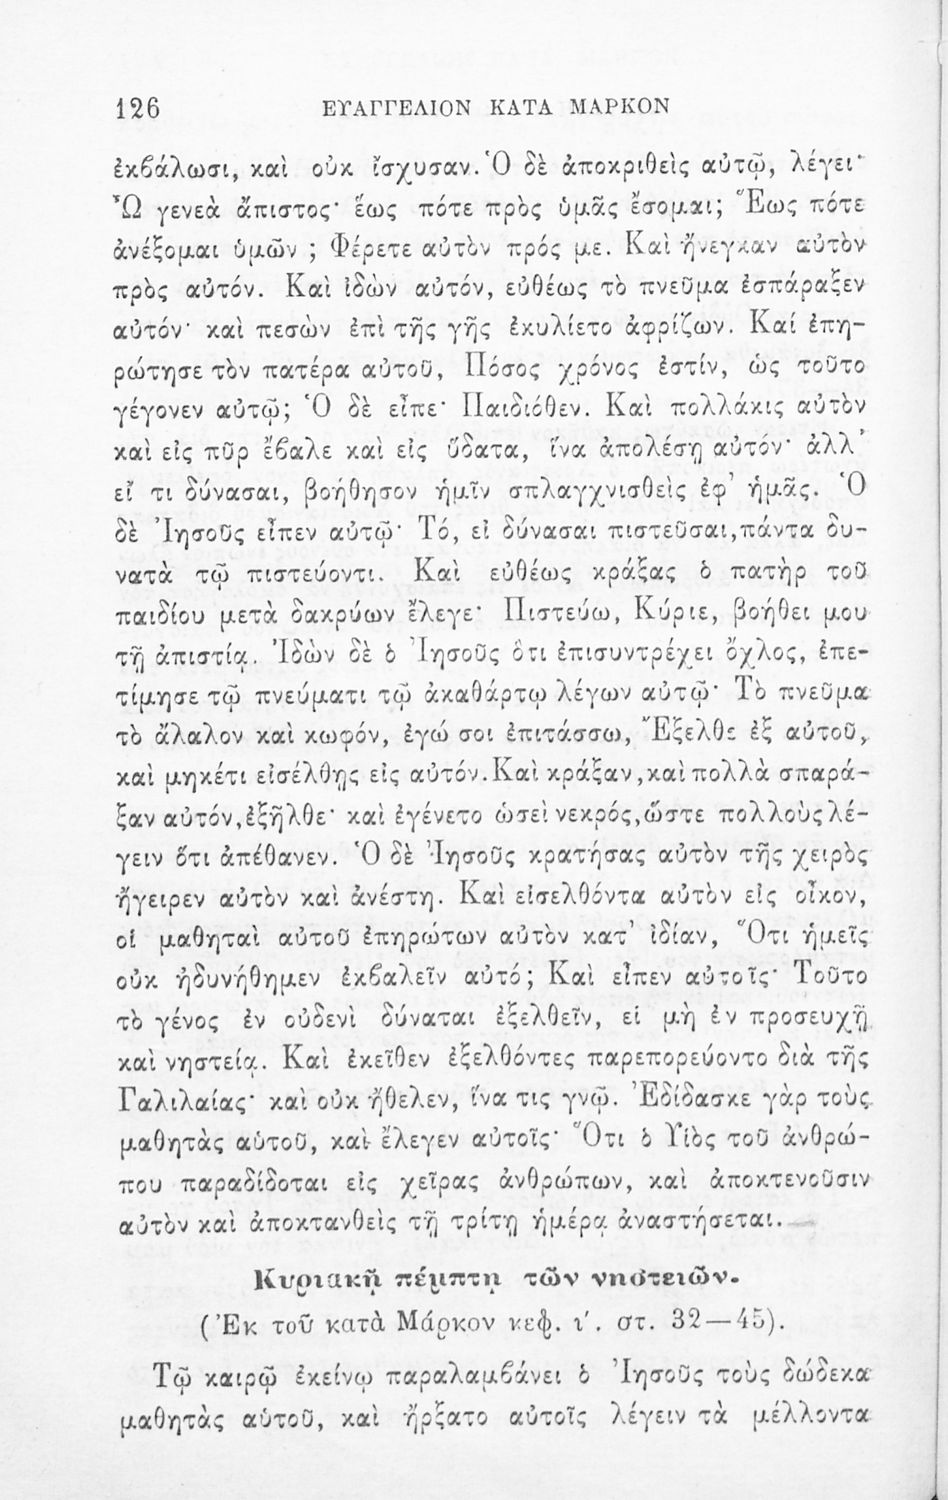 126 ΕΥΑΓΓΕΛΙΟΝ ΚΑΤΑ ΜΑΡΚΟΝ
ἐκβάλωσι, καὶ οὐκ ἴσχυσαν. Ὁ δὲ ἀποκριθεὶς αὐτῷ, λέγει·
Ὦ γενεὰ ἄπιστος· ἕως πότε πρὸς ὑμᾶς ἔσομαι; Ἕως πότε
ἀνέξομαι ὑμῶν ; Φέρετε αὐτὸν πρός με. Καὶ ἤνεγκαν αὐτὸν
πρὸς αὐτόν. Καὶ ἰδὼν αὐτόν, εὐθέως τὸ πνεῦμα ἐσπάραξεν
αὐτόν· καὶ πεσὼν ἐπὶ τῆς γῆς ἐκυλίετο ἀφρίζων. Καί ἐπη-
ρώτησε τὸν πατέρα αὐτοῦ, Πόσος χρόνος ἐστίν, ὡς τοῦτο
γέγονεν αὐτῷ; Ὁ δὲ εἶπε· Παιδιόθεν. Καὶ πολλάκις αὐτὸν
καὶ εἰς πῦρ ἔβαλε καὶ εἰς ὕδατα, ἵνα ἀπολέσῃ αὐτόν· ἀλλ᾽
εἴ τι δύνασαι, βοήθησον ἡμῖν σπλαγχνισθεὶς ἐφ᾽ ἡμᾶς. Ὁ
δὲ Ἰησοῦς εἶπεν αὐτῷ· Τό, εἰ δύνασαι πιστεῦσαι,πάντα δυ-
νατὰ τῷ πιστεύοντι. Καὶ εὐθέως κράξας ὁ πατὴρ τοῦ
παιδίου μετὰ δακρύων ἔλεγε· Πιστεύω, Κύριε, βοήθει μου
τῇ ἀπιστίᾳ. Ἰδὼν δὲ ὁ Ἰησοῦς ὅτι ἐπισυντρέχει ὄχλος, ἐπε-
τίμησε τῷ πνεύματι τῷ ἀκαθάρτῳ λέγων αὐτῷ· Τὸ πνεῦμα
τὸ ἄλαλον καὶ κωφόν, ἐγώ σοι ἐπιτάσσω, Ἔξελθε ἐξ αὐτοῦ,
καὶ μηκέτι εἰσέλθῃς εἰς αὐτόν.Καὶ κράξαν,καὶ πολλὰ σπαρά-
ξαν αὐτόν,ἐξῆλθε· καὶ ἐγένετο ὡσεὶ νεκρός,ὥστε πολλοὺς λέ-
γειν ὅτι ἀπέθανεν. Ὁ δὲ Ἰησοῦς κρατήσας αὐτὸν τῆς χειρὸς
ἤγειρεν αὐτὸν καὶ ἀνέστη. Καὶ εἰσελθόντα αὐτὸν εἰς οἶκον,
οἱ μαθηταὶ αὐτοῦ ἐπηρώτων αὐτὸν κατ᾽ ἰδίαν, Ὅτι ἡμεῖς
οὐκ ἠδυνήθημεν ἐκβαλεῖν αὐτό; Καὶ εἶπεν αὐτοῖς· Τοῦτο
τὸ γένος ἐν οὐδενὶ δύναται ἐξελθεῖν, εἰ μὴ ἐν προσευχῇ
καὶ νηστείᾳ. Καὶ ἐκεῖθεν ἐξελθόντες παρεπορεύοντο διὰ τῆς
Γαλιλαίας· καὶ οὐκ ἤθελεν, ἵνα τις γνῷ. Ἐδίδασκε γὰρ τοὺς
μαθητὰς αὑτοῦ, καὶ ἔλεγεν αὐτοῖς· Ὅτι ὁ Υἱὸς τοῦ ἀνθρώ-
που παραδίδοται εἰς χεῖρας ἀνθρώπων, καὶ ἀποκτενοῦσιν
αὐτὸν καὶ ἀποκτανθεὶς τῇ τρίτῃ ἡμέρᾳ ἀναστήσεται.
Κυριακῇ πέμπτῃ τῶν νηστειῶν.
(Ἐκ τοῦ κατὰ Μάρκον κεφ. ι΄. στ. 32—45).
Τῷ καιρῷ ἐκείνῳ παραλαμβάνει ὁ Ἰησοῦς τοὺς δώδεκα
μαθητὰς αὑτοῦ, καὶ ἤρξατο αὐτοῖς λέγειν τὰ μέλλοντα